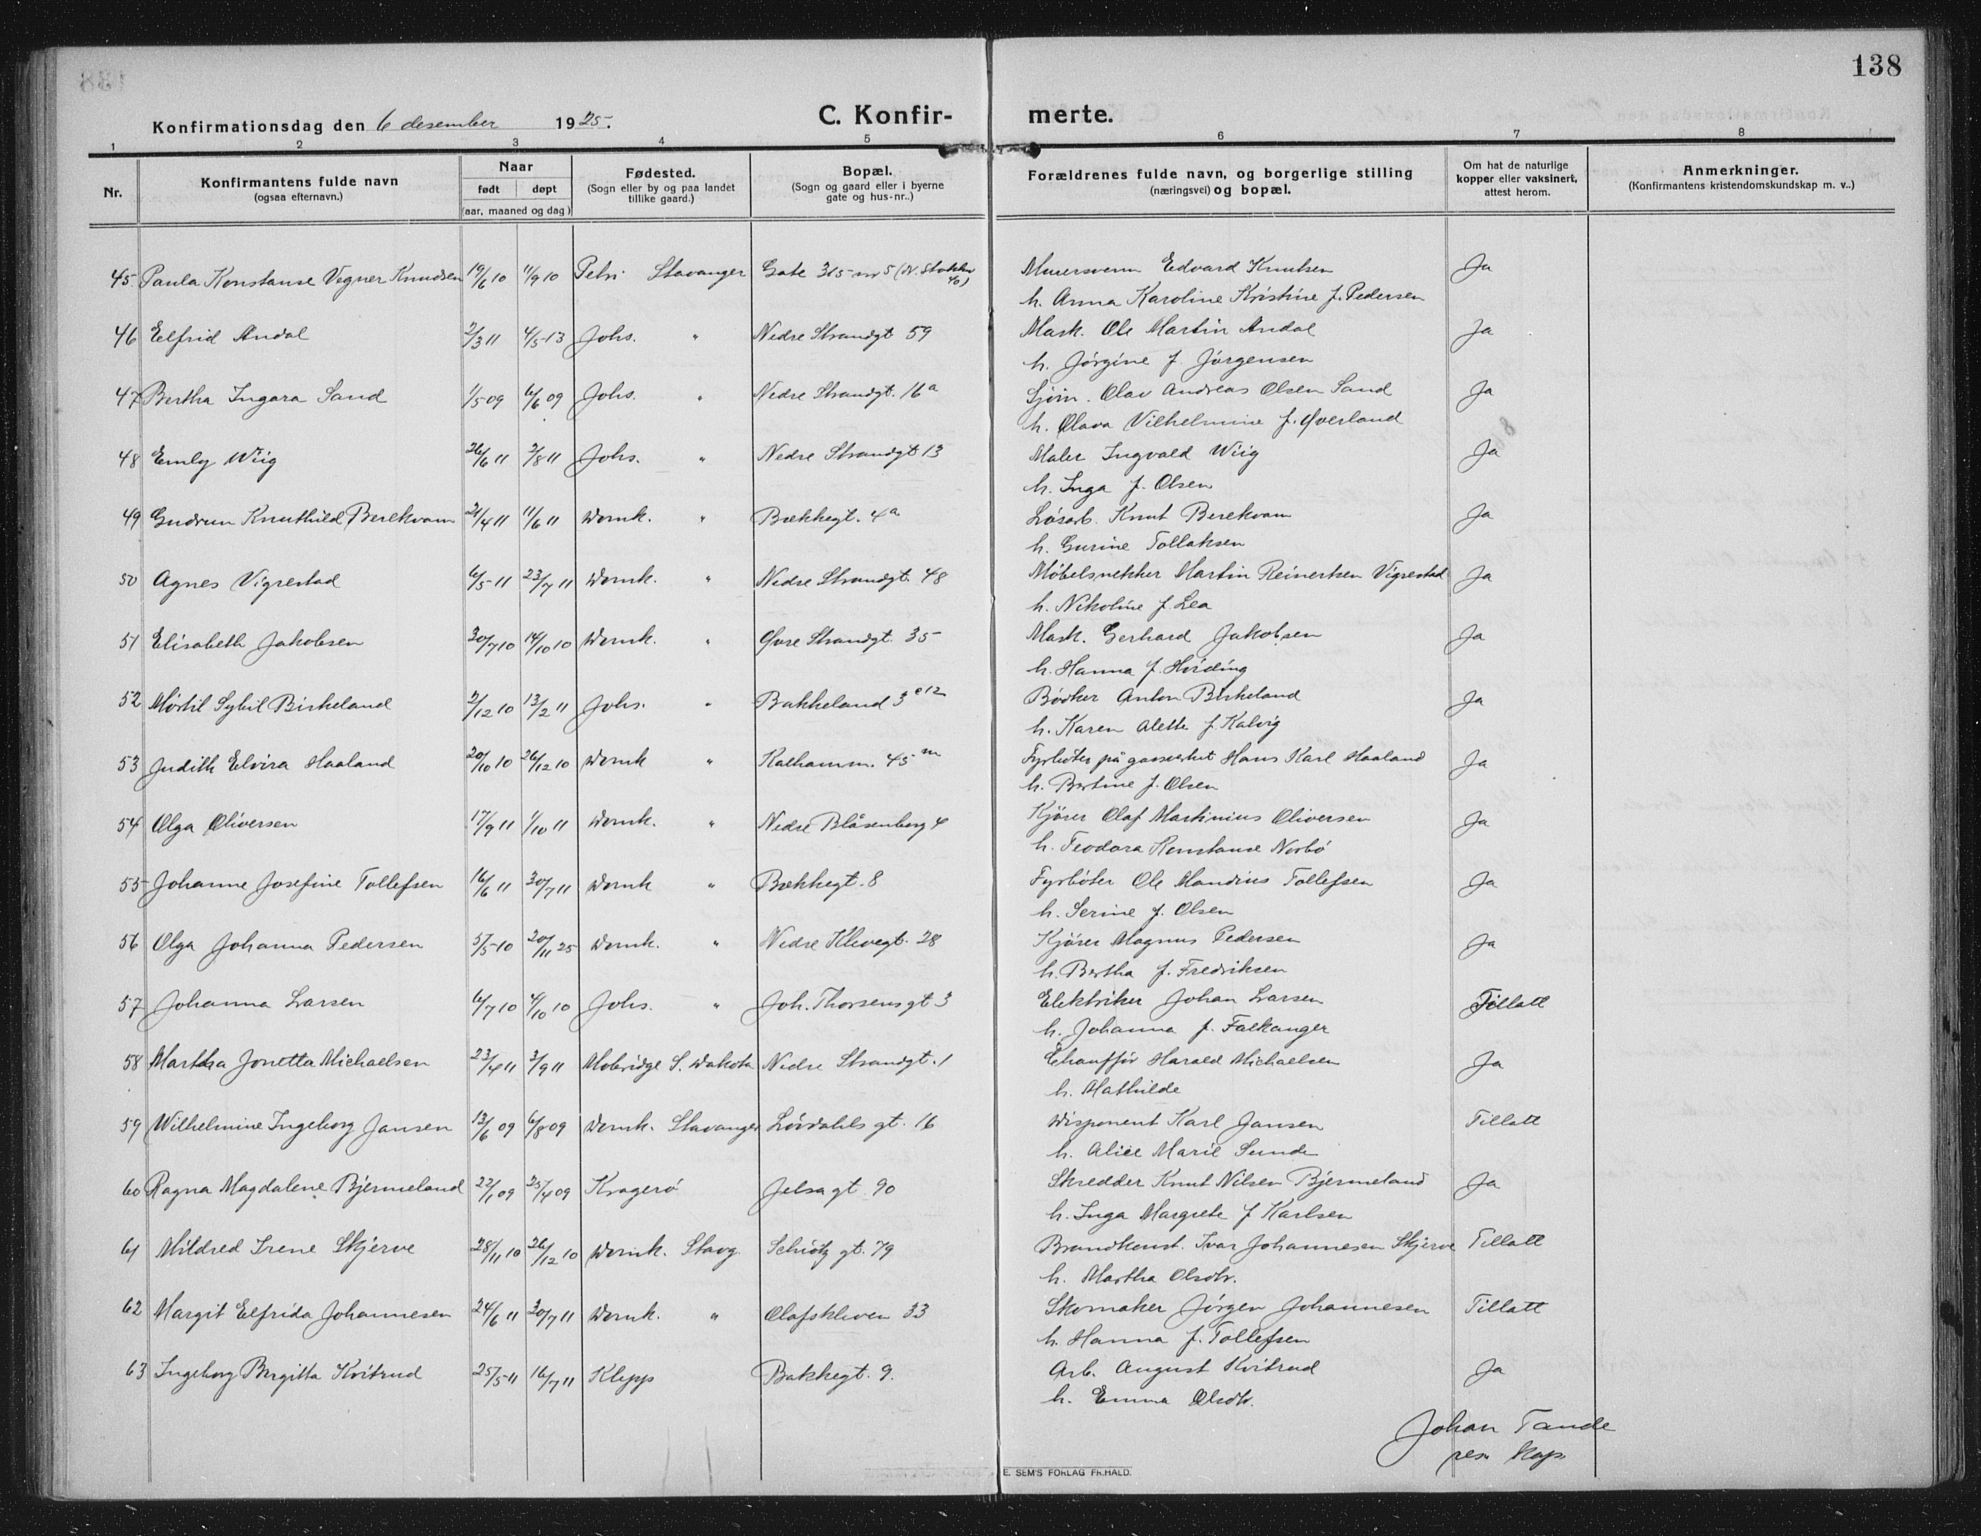 138
C. Konfir- merte.
Konfirmationsdag den 6 desember 1925.
1 2 3 4 5 6 7 8
Nr. Konfirmantens fulde navn (ogsaa efternavn.) Naar født døpt (aar, maaned og dag) Fødested. (Sogn eller by og paa landet tillike gaard.) Bopæl. (Sogn og gaard eller i byerne gate og hus-nr..) Forældrenes fulde navn, og borgerlige stilling (næringsvei) og bopæl. Om hat de naturlige kopper eller vaksinert, attest herom. Anmerkninger. (Konfirmantens kristendomskundskap m. v..)
45 Paula Konstanse Vegner Knudsen 19/6 10 11/9 10 Petri Stavanger Gate 315 nr 5 (N. Stokkv 40) Murersvenn Edvard Knutsen Ja
h. Anna Karoline Kristine f. Pedersen
46 Elfrid Andal 2/3 11 4/5 13 Johs. " Nedre Strandgt 59 Mask. Ole Martin Andal Ja
h. Jørgine f. Jørgensen
47 Bertha Ingara Sand 1/5 09 6/6 09 Johs. " Nedre Strandgt. 16a Sjøm. Olav Andreas Olsen Sand Ja
h. Olava Vilhelmine f. Øverland
48 Emly Wiig 26/6 11 2/8 11 Johs. " Nedre Strandgt 13 Maler Ingvald Wiig Ja
h. Inga f. Olsen
49 Gudrun Knuthild Berekvam 21/4 11 11/6 11 Domk. " Bækkegt. 4a Løsarb. Knut Berekvam Ja
h. Gurine Tollaksen
50 Agnes Vigrestad 6/5 11 23/7 11 Domk. " Nedre Strandgt. 48 Møbelsnekker Martin Reinertsen Vigrestad Ja
h. Nikoline f Lea
51 Elisabeth Jakobsen 30/7 10 14/10 10 Domk. " Øvre Strandgt. 35 Mask. Gerhard Jakobsen Ja
h. Hanna f. Hviding
52 Mørtil Sybil Birkeland 2/12 10 13/2 11 Johs. " Bakkeland 3 e12 Bødker Anton Birkeland Ja
h. Karen Alette f. Kalvig
53 Judith Elvira Haaland 20/10 10 26/12 10 Domk " Kalhamm. 45 m Fyrbøter på gassverket Hans Karl Haaland Ja
h. Bertine f. Olsen
54 Olga Oliversen 17/9 11 1/10 11 Domk. " Nedre Blåsenborg 4 Kjører Olaf Martinius Oliversen Ja
h. Teodora Konstanse Norbø
55 Johanne Josefine Tollefsen 16/6 11 30/7 11 Domk " Bækkegt. 8 Fyrbøter Ole Mandius Tollefsen Ja
h. Serine f. Olsen
56 Olga Johanna Pedersen 5/5 10 20/11 25 Domk. " Nedre Klevegt. 28 Kjører Magnus Pedersen Ja
h. Bertha f. Fredriksen
57 Johanna Larsen 6/7 10 4/10 10 Johs. " Joh. Thorsens gt 3 Elektriker Johan Larsen Tillatt
h. Johanna f. Falkanger
58 Martha Jonetta Michaelsen 23/4 11 3/9 11 Mobridge S. Dakota Nedre Strandgt. 1 Chauffør Harald Michaelsen Ja
h. Mathilde
59 Wilhelmine Ingeborg Jansen 13/6 09 6/8 09 Domk. Stavanger Løvdahls gt. 16 Disponent Karl Jansen Tillatt
h. Alice Marie Sunde
60 Ragna Magdalene Bjermeland 22/1 09 25/4 09 Kragerø Jelsa gt 90 Skredder Knut Nilsen Bjermeland Ja
h. Inga Margrete f Karlsen
61 Mildred Irene Skjerve 28/11 10 26/12 10 Domk. Stavg. Schiøtz gt. 79 Brandkonst. Ivar Johannesen Skjerve Tillatt
h. Martha Olsdtr.
62 Margit Elfrida Johannesen 24/6 11 30/7 11 Domk. " Olafskleven 33 Skomaker Jørgen Johannesen Tillatt
h. Hanna f. Tollefsen
63 Ingeborg Birgitta Kvitrud 25/5 11 16/7 11 Klepp Bakkegt. 9. Arb. August Kvitrud Ja
h. Emma Olsdtr.
Johan Tande
res kap
E. SEM'S FORLAG FR.HALD.